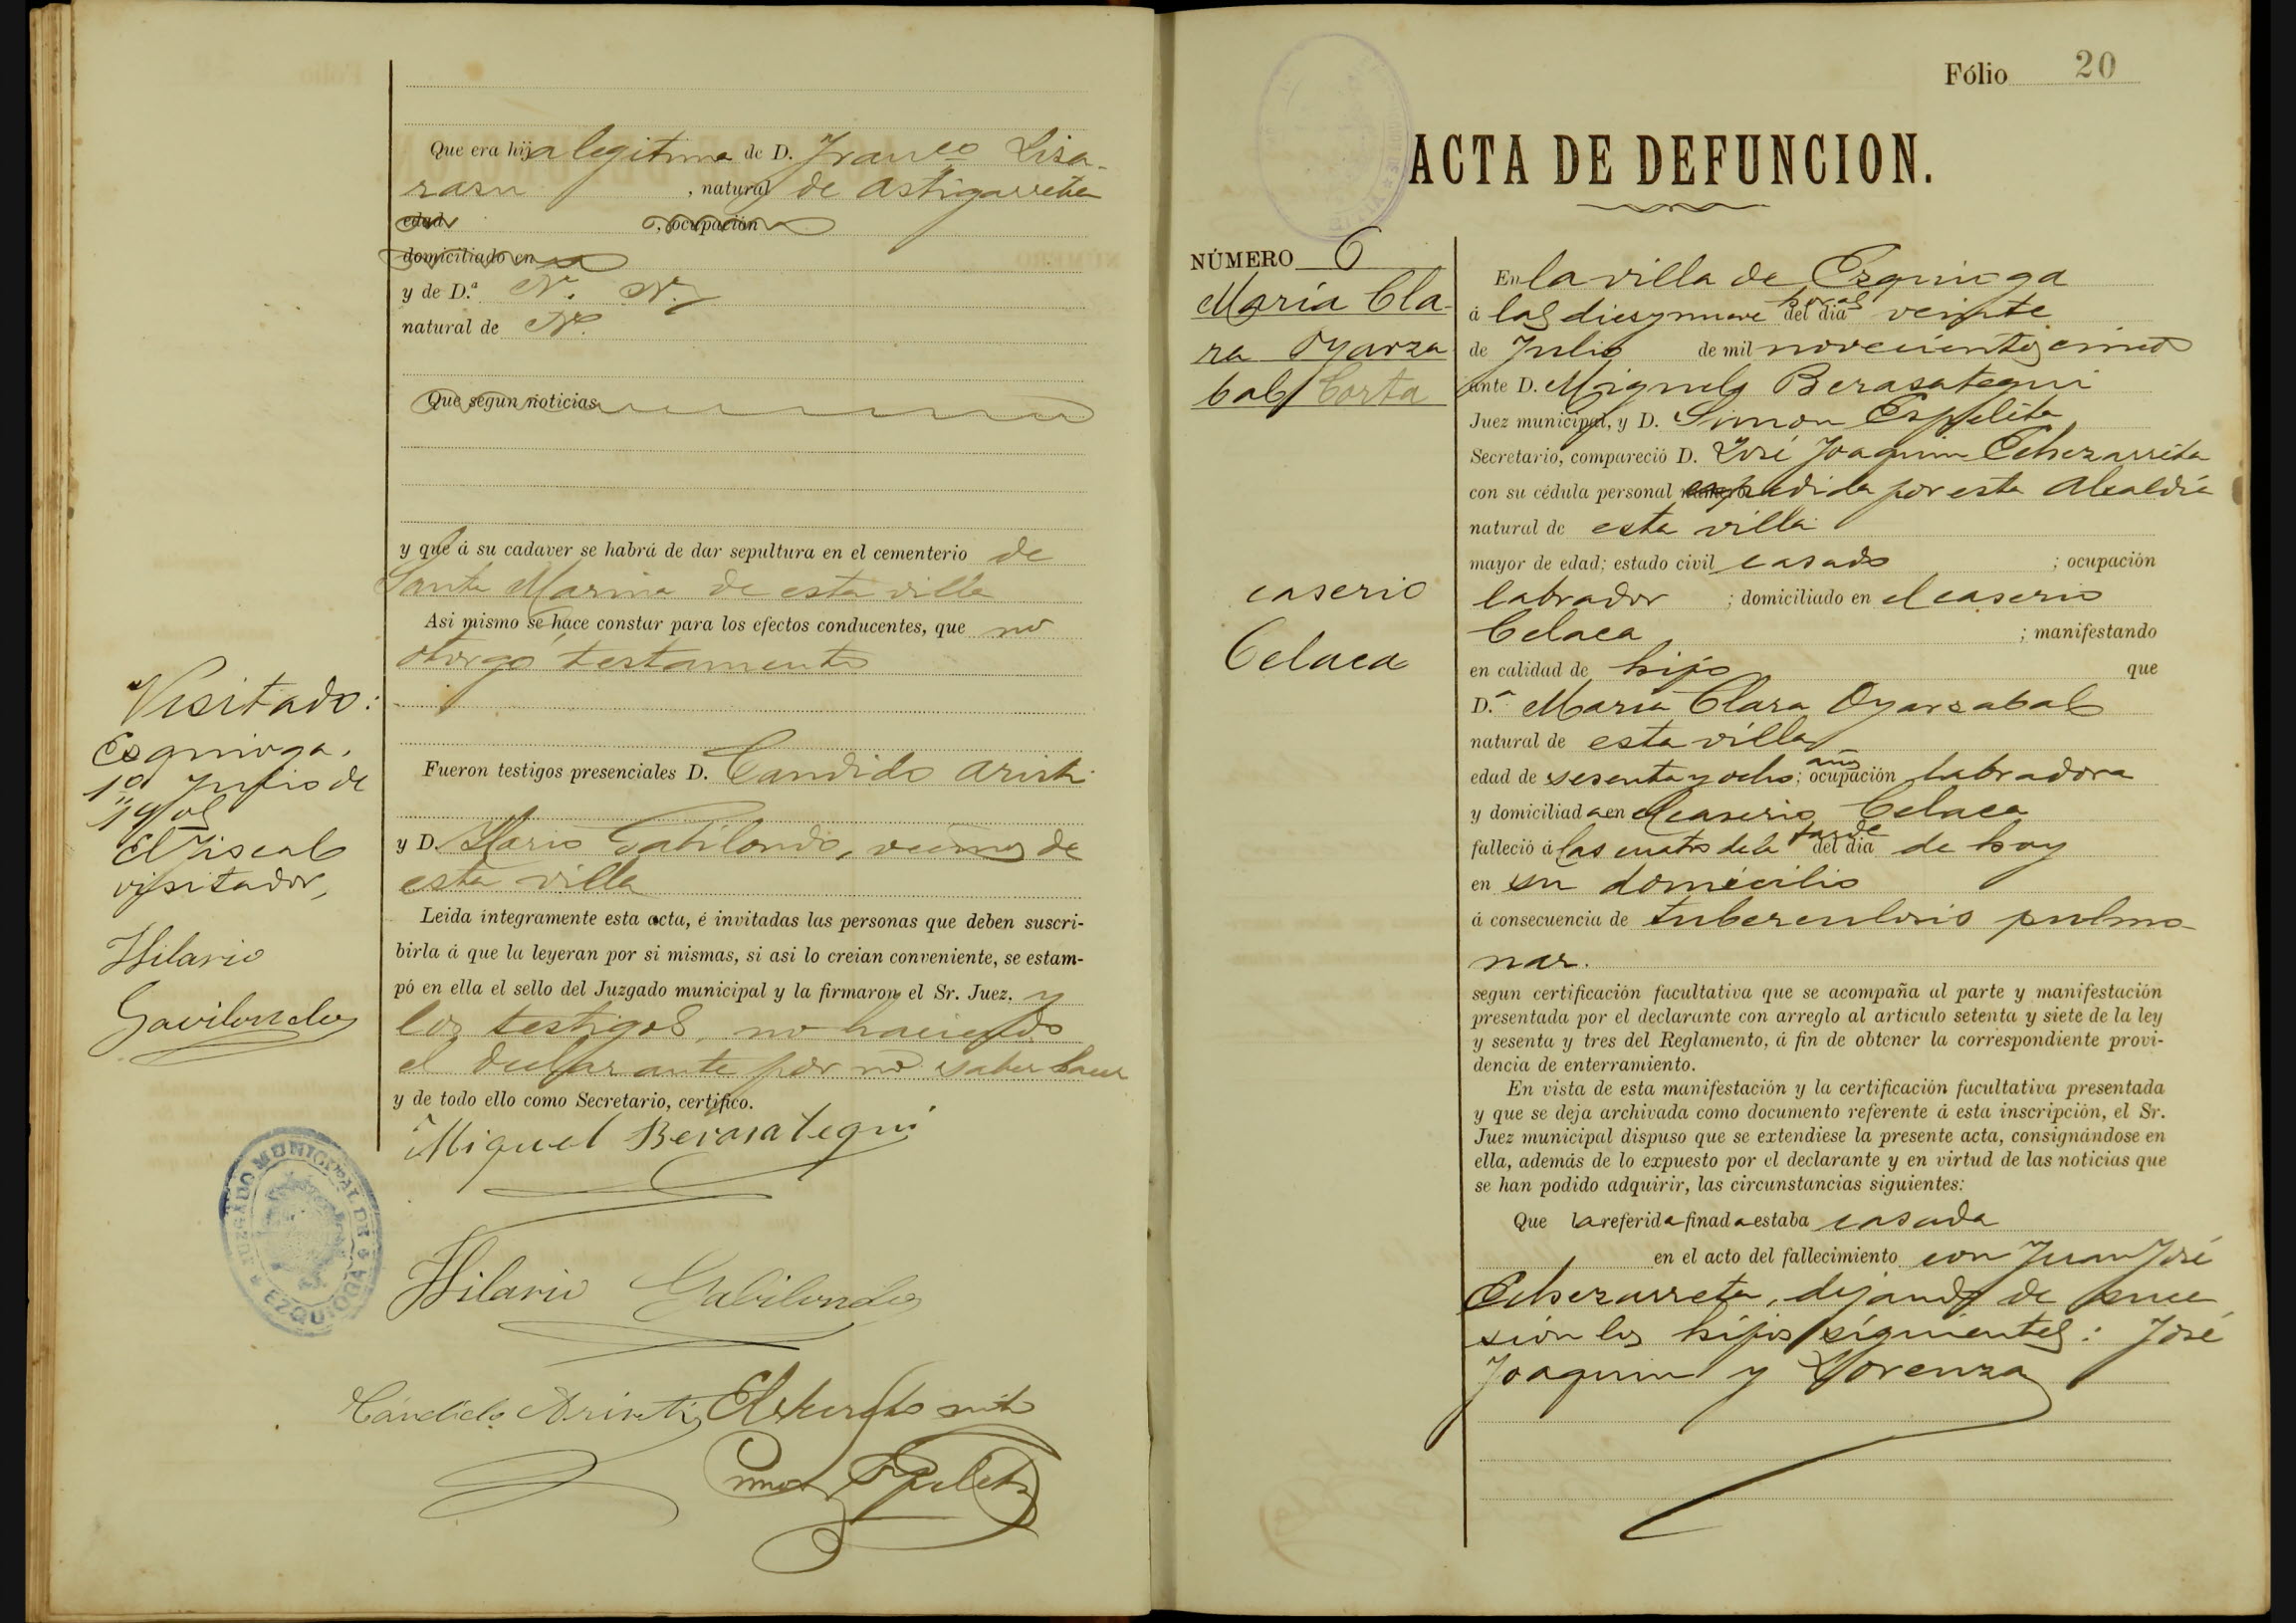 Que era hija legitima de D. Franco Liza-
razu , natural de Astigarreta
edad , ocupación
domiciliado en
y de D.ª N. N.
natural de N.
Que segun noticias
y que á su cadaver se habrá de dar sepultura en el cementerio de
Santa Marina de esta villa
Asi mismo se hace constar para los efectos conducentes, que no
otorgó testamento
Fueron testigos presenciales D. Candido Aristi
y D. Ilario Gabilondo, vecinos de
esta villa
Leida integramente esta acta, é invitadas las personas que deben suscri-
birla á que la leyeran por si mismas, si asi lo creian conveniente, se estam-
pó en ella el sello del Juzgado municipal y la firmaron el Sr. Juez. y
los testigos, no haciendo
el declarante por no saber hacer
y de todo ello como Secretario, certifico.
Miguel Berasategui
Hilario Gabilondo
Cándido Aristi
Espeleta
Visitado:
Esquioga.
1º Julio de
1905
El Fiscal
visitador,
Hilario
Gavilondo
JUZGADO MUNICIPAL DE EZQUIOGA
Fólio 20
ACTA DE DEFUNCION.
NÚMERO 6
María Cla-
ra Oyarza
bal Corta
caserio
Celaea
En la villa de Ezquioga
á las diesynueve horas del dia veinte
de Julio de mil novecientos cinco
ante D. Miguel Berasategui
Juez municipal, y D. Simon Espeleta
Secretario, compareció D. José Joaquin Echezarreta
con su cédula personal expedida por esta Alcaldía
natural de esta villa
mayor de edad; estado civil casado ; ocupación
labrador ; domiciliado en el caserio
Celaea ; manifestando
en calidad de hijo que
D.ª María Clara Oyarzabal
natural de esta villa
edad de sesenta y ocho años; ocupación labradora
y domiciliada en el caserio Celaea
falleció á las cuatro de la tarde del dia de hoy
en su domicilio
á consecuencia de tuberculosis pulmo-
nar.
segun certificación facultativa que se acompaña al parte y manifestación
presentada por el declarante con arreglo al articulo setenta y siete de la ley
y sesenta y tres del Reglamento, á fin de obtener la correspondiente provi-
dencia de enterramiento.
En vista de esta manifestación y la certificación facultativa presentada
y que se deja archivada como documento referente á esta inscripción, el Sr.
Juez municipal dispuso que se extendiese la presente acta, consignándose en
ella, además de lo expuesto por el declarante y en virtud de las noticias que
se han podido adquirir, las circunstancias siguientes:
Que la referida finada estaba casada
en el acto del fallecimiento con Juan José
Echezarreta, dejando de suce
sión los hijos siguientes: José
Joaquin y Lorenza